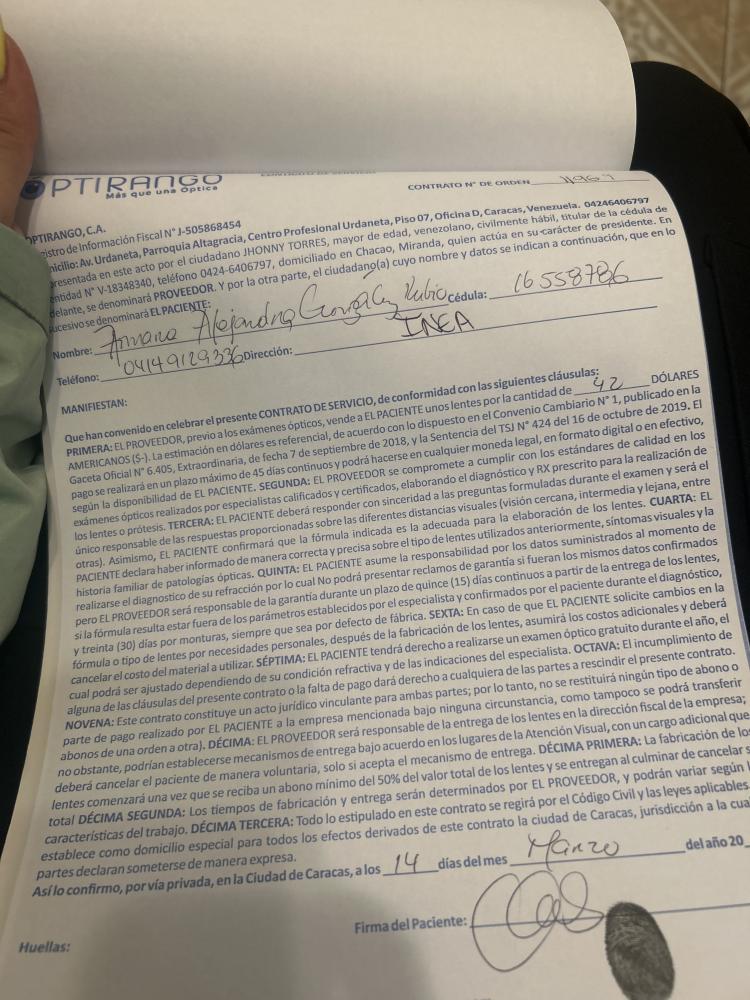 OPTIRANGO
Más que una Óptica
CONTRATO N° DE ORDEN
OPTIRANGO, C.A.
gistro de Información Fiscal N° J-505868454
micilio: Av. Urdaneta, Parroquia Altagracia, Centro Profesional Urdaneta, Piso 07, Oficina D, Caracas, Venezuela. 04246406797
presentada en este acto por el ciudadano JHONNY TORRES, mayor de edad, venezolano, civilmente hábil, titular de la cédula de
entidad N° V-18348340, teléfono 0424-6406797, domiciliado en Chacao, Miranda, quien actúa en su carácter de presidente. En
delante, se denominará PROVEEDOR. Y por la otra parte, el ciudadano(a) cuyo nombre y datos se indican a continuación, que en lo
sucesivo se denominará EL PACIENTE:
Nombre: Alejandra González Rubio Cédula: 16558786
Teléfono: 04149129336 Dirección: INEA
MANIFIESTAN:
Que han convenido en celebrar el presente CONTRATO DE SERVICIO, de conformidad con las siguientes cláusulas:
PRIMERA: EL PROVEEDOR, previo a los exámenes ópticos, vende a EL PACIENTE unos lentes por la cantidad de 42 DÓLARES
AMERICANOS ($-). La estimación en dólares es referencial, de acuerdo con lo dispuesto en el Convenio Cambiario N° 1, publicado en la
Gaceta Oficial N° 6.405, Extraordinaria, de fecha 7 de septiembre de 2018, y la Sentencia del TSJ N° 424 del 16 de octubre de 2019. El
pago se realizará en un plazo máximo de 45 días continuos y podrá hacerse en cualquier moneda legal, en formato digital o en efectivo,
según la disponibilidad de EL PACIENTE. SEGUNDA: EL PROVEEDOR se compromete a cumplir con los estándares de calidad en los
exámenes ópticos realizados por especialistas calificados y certificados, elaborando el diagnóstico y RX prescrito para la realización de
los lentes o prótesis. TERCERA: EL PACIENTE deberá responder con sinceridad a las preguntas formuladas durante el examen y será el
único responsable de las respuestas proporcionadas sobre las diferentes distancias visuales (visión cercana, intermedia y lejana, entre
otras). Asimismo, EL PACIENTE confirmará que la fórmula indicada es la adecuada para la elaboración de los lentes. CUARTA: EL
PACIENTE declara haber informado de manera correcta y precisa sobre el tipo de lentes utilizados anteriormente, síntomas visuales y la
historia familiar de patologías ópticas. QUINTA: EL PACIENTE asume la responsabilidad por los datos suministrados al momento de
realizarse el diagnostico de su refracción por lo cual No podrá presentar reclamos de garantía si fueran los mismos datos confirmados
pero EL PROVEEDOR será responsable de la garantía durante un plazo de quince (15) días continuos a partir de la entrega de los lentes,
si la fórmula resulta estar fuera de los parámetros establecidos por el especialista y confirmados por el paciente durante el diagnóstico,
y treinta (30) días por monturas, siempre que sea por defecto de fábrica. SEXTA: En caso de que EL PACIENTE solicite cambios en la
fórmula o tipo de lentes por necesidades personales, después de la fabricación de los lentes, asumirá los costos adicionales y deberá
cancelar el costo del material a utilizar. SÉPTIMA: EL PACIENTE tendrá derecho a realizarse un examen óptico gratuito durante el año, el
cual podrá ser ajustado dependiendo de su condición refractiva y de las indicaciones del especialista. OCTAVA: El incumplimiento de
alguna de las cláusulas del presente contrato o la falta de pago dará derecho a cualquiera de las partes a rescindir el presente contrato.
NOVENA: Este contrato constituye un acto jurídico vinculante para ambas partes; por lo tanto, no se restituirá ningún tipo de abono o
parte de pago realizado por EL PACIENTE a la empresa mencionada bajo ninguna circunstancia, como tampoco se podrá transferir
abonos de una orden a otra). DÉCIMA: EL PROVEEDOR será responsable de la entrega de los lentes en la dirección fiscal de la empresa;
no obstante, podrían establecerse mecanismos de entrega bajo acuerdo en los lugares de la Atención Visual, con un cargo adicional que
deberá cancelar el paciente de manera voluntaria, solo si acepta el mecanismo de entrega. DÉCIMA PRIMERA: La fabricación de los
lentes comenzará una vez que se reciba un abono mínimo del 50% del valor total de los lentes y se entregan al culminar de cancelar s
total DÉCIMA SEGUNDA: Los tiempos de fabricación y entrega serán determinados por EL PROVEEDOR, y podrán variar según l
características del trabajo. DÉCIMA TERCERA: Todo lo estipulado en este contrato se regirá por el Código Civil y las leyes aplicables.
establece como domicilio especial para todos los efectos derivados de este contrato la ciudad de Caracas, jurisdicción a la cua
partes declaran someterse de manera expresa.
Así lo confirmo, por vía privada, en la Ciudad de Caracas, a los 14 días del mes Marzo del año 20
Firma del Paciente:
Huellas: